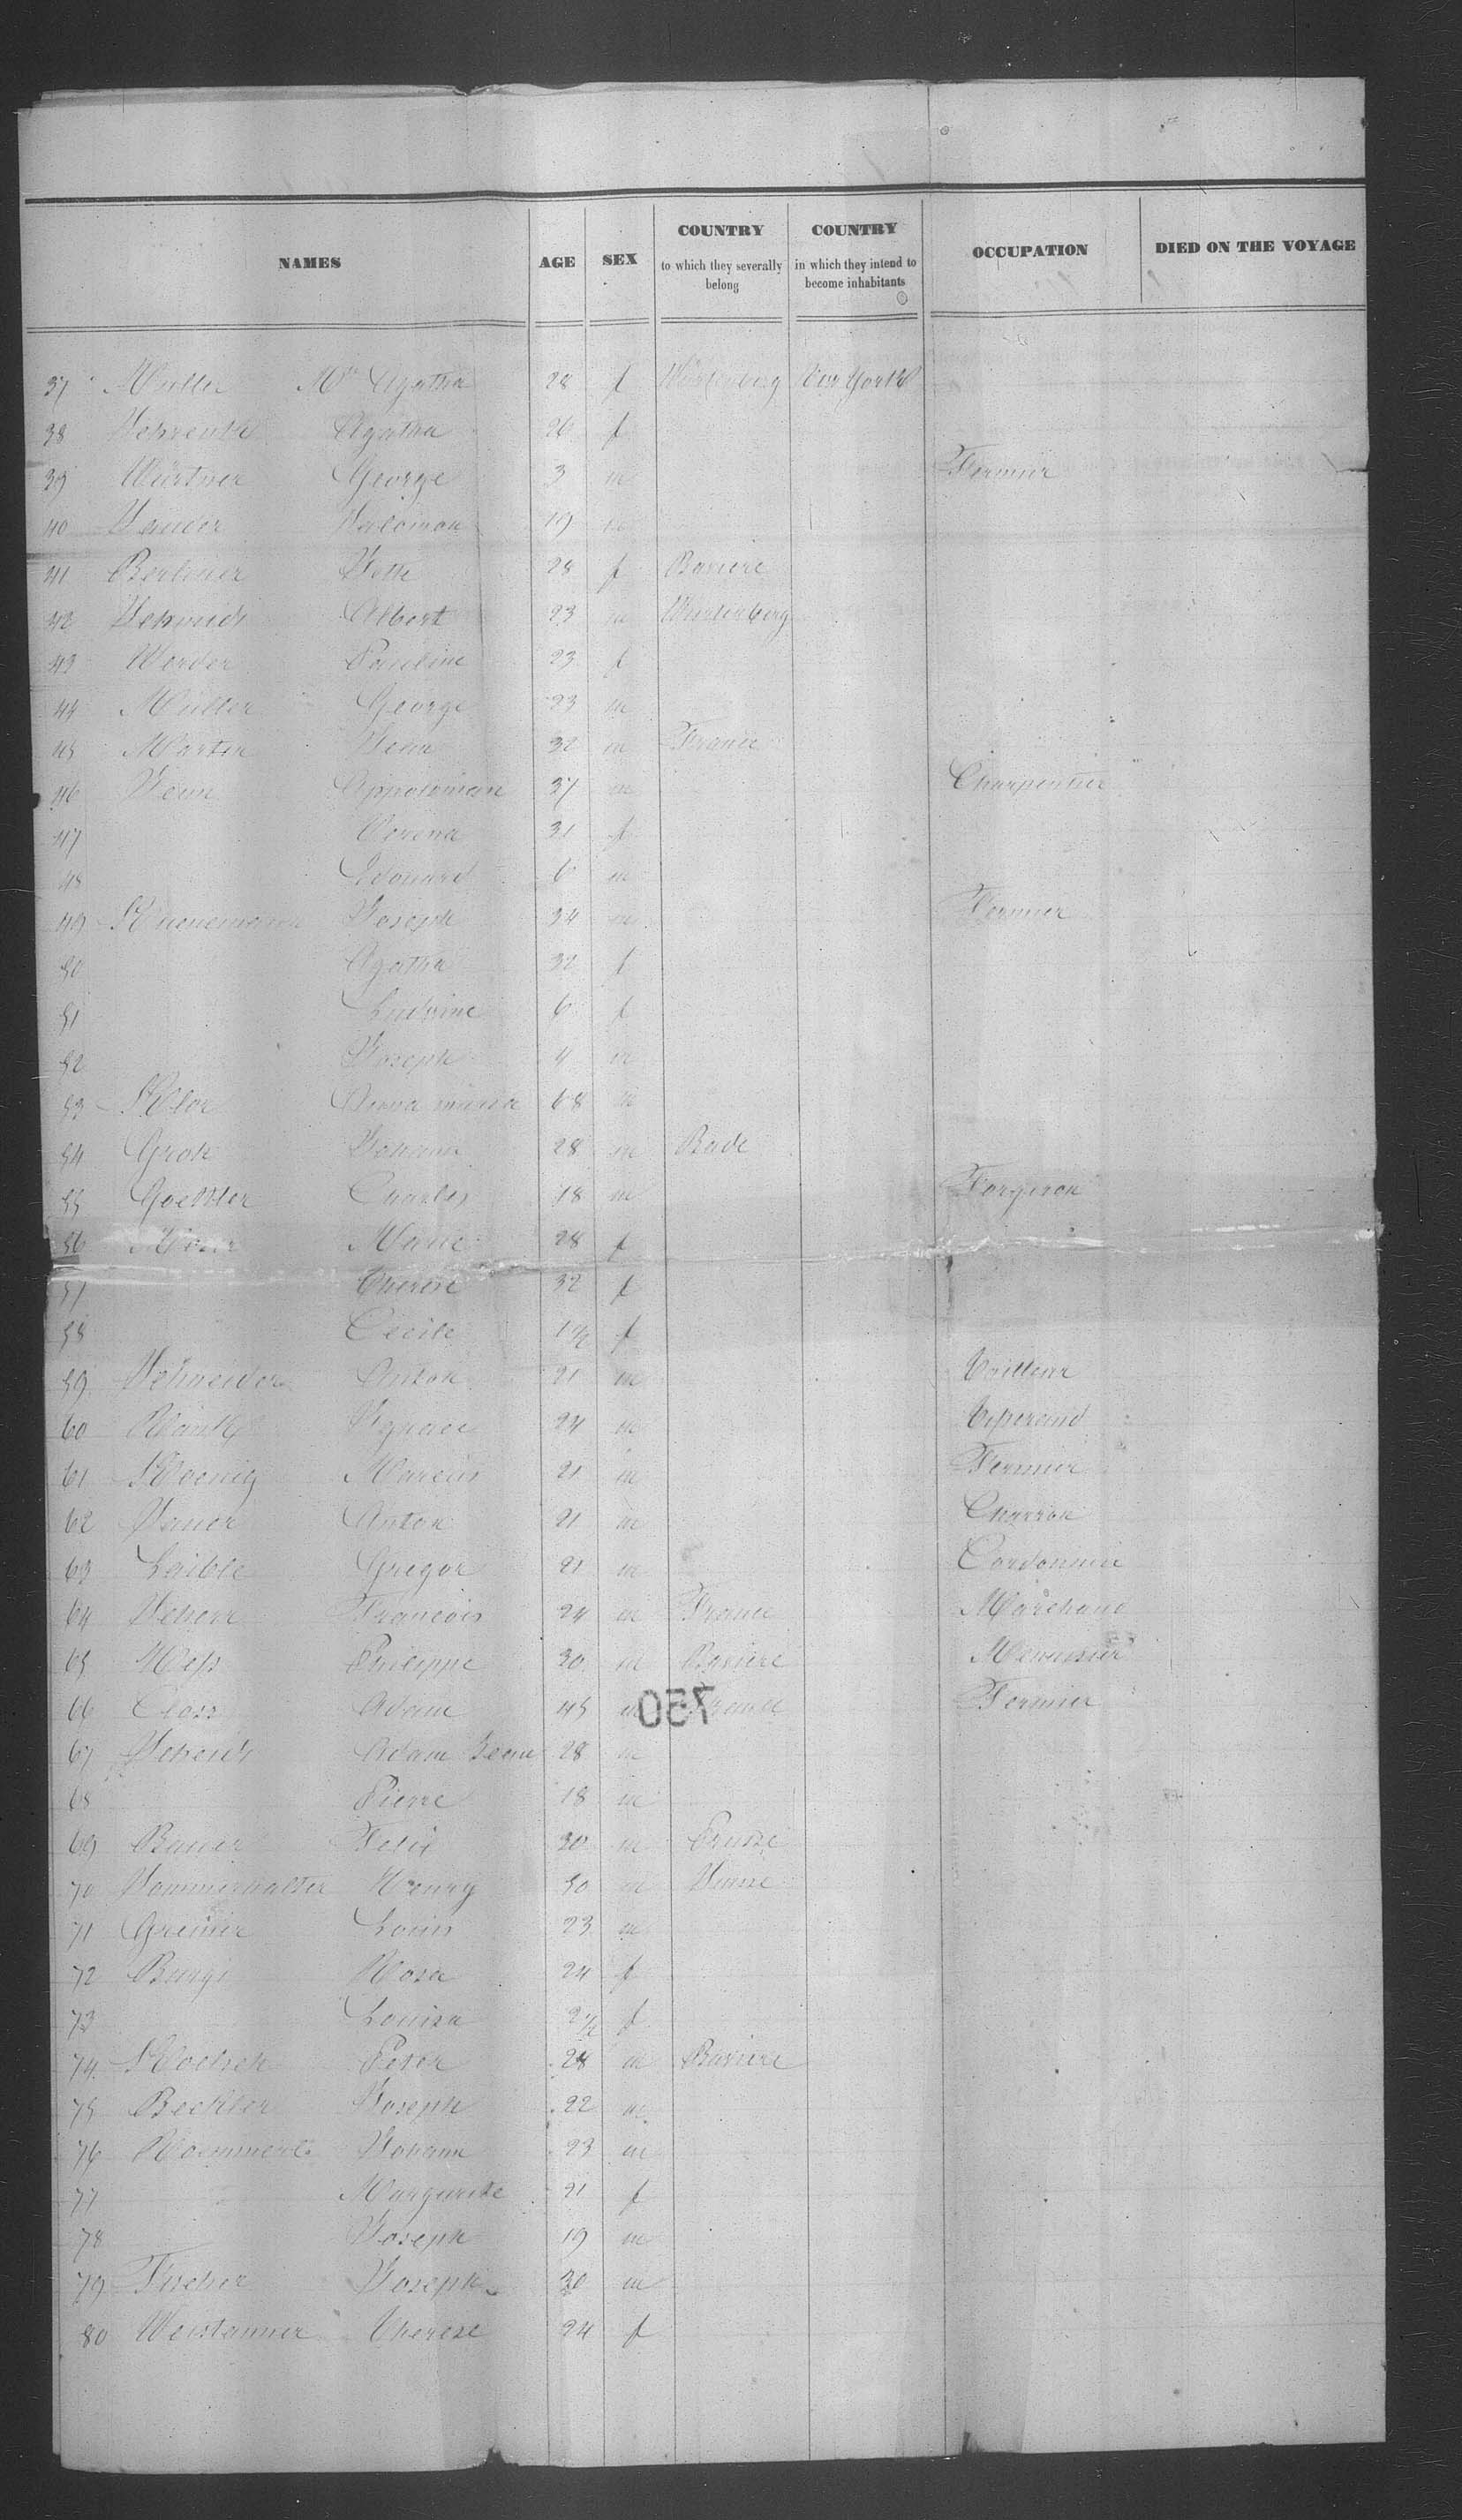 NAMES AGE SEX COUNTRY to which they severally belong COUNTRY in which they intend to become inhabitants OCCUPATION DIED ON THE VOYAGE
37 Müller Agatha 28 f Würtemberg New York
38 Agatha 26 f
39 Würtner George 3 m Fermier
40 Salomon 19 m
41 Berliner 28 f Baviere
42 Schmidt Albert 23 m Wurtemberg
43 Werder Pauline 23 f
44 Müller George 23 m
45 Martin Jean 32 m France
46 37 m Charpentier
47 Verena 31 f
48 Edouard 6 m
49 Kuenemann Joseph 34 m Fermier
50 Agatha 32 f
51 Ludvine 6 f
52 Joseph 4 m
53 Anna maria 68 m
54 Groh Johann 28 m Bade
55 Goettler Charles 18 m Forgeron
56 Marie 28 f
57 Therese 32 f
58 Cecile 1 1/2 f
59 Schneider Anton 21 m Tailleur
60 Ignace 24 m
61 Koenig Marcus 21 m Fermier
62 Anton 21 m Charron
63 Laible Gregor 21 m Cordonnier
64 Scherr Francois 24 m France Marchand
65 Philippe 30 m Baviere Menuisier
66 Closs Adam 45 m France Fermier
750
67 Scheid Adam Jean 28 m
68 Pierre 18 m
69 Bauer Felix 30 m Prusse
70 Sommerhalter Henry 50 m Suisse
71 Grenier Louis 23 m
72 Burgi Rosa 24 f
73 Louisa 2 1/2 f
74 Peter 28 m Baviere
75 Bechler Joseph 22 m
76 Johann 23 m
77 Margarete 21 f
78 Joseph 19 m
79 Fischer Joseph 30 m
80 Weistanner Therese 24 f